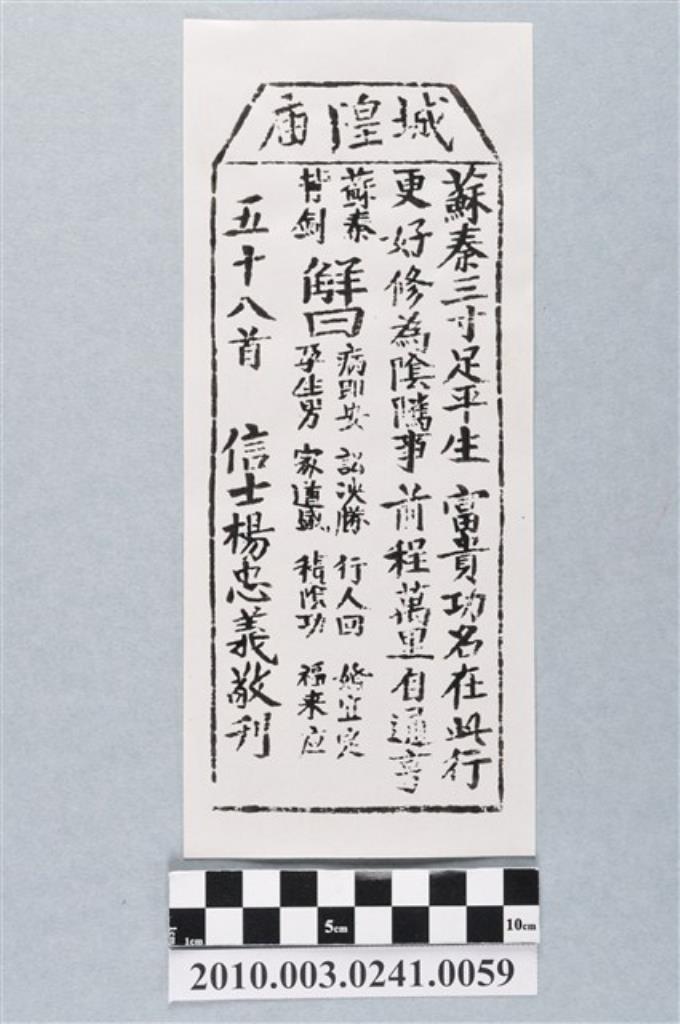 城隍廟
蘇秦三寸足平生 富貴功名在此行
更好修為陰隲事 前程萬里自通亨
蘇秦
背劍
解曰
病即安 訟決勝 行人回 婚宜定
孕生男 家道盛 積陰功 福來应
五十八首 信士楊忠義敬刊
1cm 5cm 10cm
2010.003.0241.0059